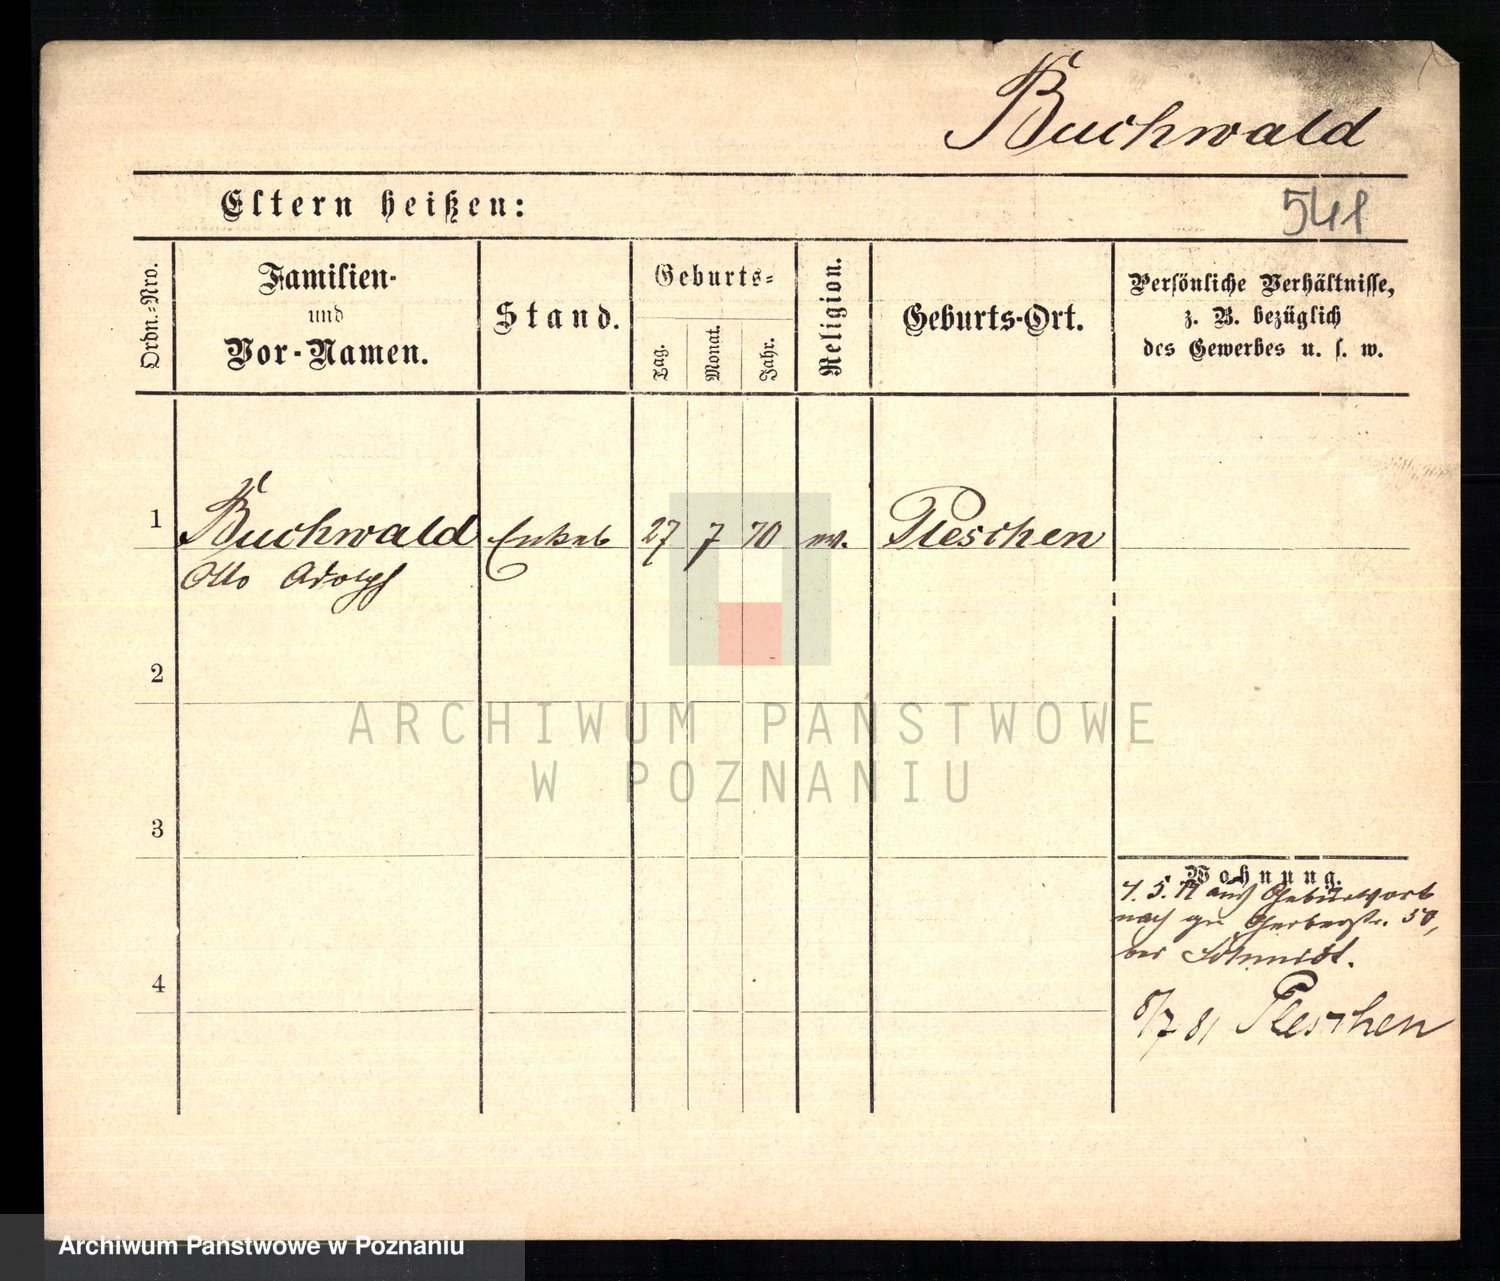 Buchwald
Eltern heißen:
541
Ordn.-Nro.
Familien-
und
Vor-Namen.
Stand.
Geburts-
Tag.
Monat.
Jahr.
Religion.
Geburts-Ort.
Persönliche Verhältnisse,
z. B. bezüglich
des Gewerbes u. s. w.
1 Buchwald Enkel 27 7 70 ev. Pleschen
Otto Adolph
2
ARCHIWUM PAŃSTWOWE
W POZNANIU
3
Wohnung.
4. 5. aus Geburtsort
nach Gerberstr. 50,
bei Schmidt.
4
8/7 81 Pleschen
Archiwum Państwowe w Poznaniu